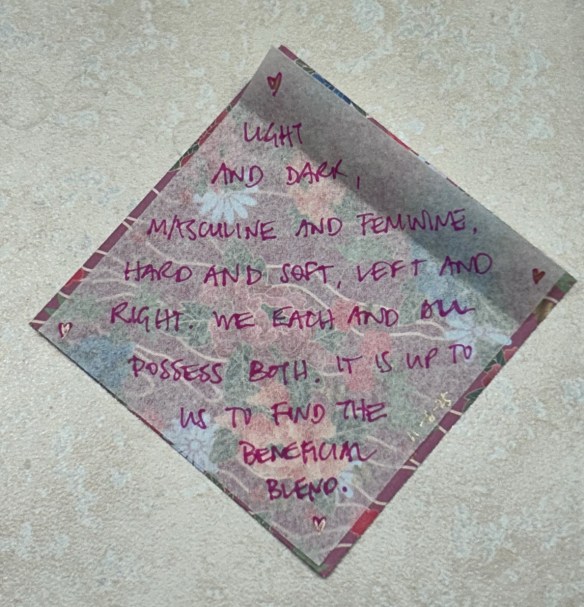 LIGHT
AND DARK,
MASCULINE AND FEMININE,
HARD AND SOFT, LEFT AND
RIGHT. WE EACH AND ALL
POSSESS BOTH. IT IS UP TO
US TO FIND THE
BENEFICIAL
BLEND.
11-6-25